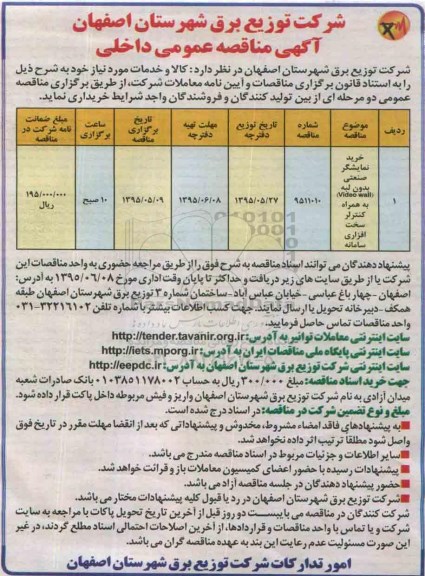 شرکت توزیع برق شهرستان اصفهان
آگهی مناقصه عمومی داخلی
شرکت توزیع برق شهرستان اصفهان در نظر دارد: کالا و خدمات مورد نیاز خود به شرح ذیل
را به استناد قانون برگزاری مناقصات و آیین نامه معاملات شرکت، از طریق برگزاری مناقصه
عمومی دو مرحله ای از بین تولید کنندگان و فروشندگان واجد شرایط خریداری نماید.
ردیف موضوع مناقصه شماره مناقصه تاریخ توزیع دفترچه مهلت تهیه دفترچه تاریخ برگزاری مناقصه ساعت برگزاری مبلغ ضمانت نامه شرکت در مناقصه
۱ خرید نمایشگر صنعتی بدون لبه (Video wall) به همراه کنترلر سخت افزاری سامانه ۹۵۱۱۰۱۰ ۱۳۹۵/۰۵/۲۷ ۱۳۹۵/۰۶/۰۸ ۱۳۹۵/۰۵/۰۹ ۱۰ صبح ۱۹۵/۰۰۰/۰۰۰ ریال
پیشنهاد دهندگان می توانند اسناد مناقصه به شرح فوق را از طریق مراجعه حضوری به واحد مناقصات این
شرکت و یا از طریق سایت های زیر دریافت و حداکثر تا پایان وقت اداری مورخ ۱۳۹۵/۰۶/۰۸ به آدرس:
اصفهان -چهارباغ عباسی - خیابان عباس آباد-ساختمان شماره ۲ توزیع برق شهرستان اصفهان طبقه
همکف -دبیرخانه تحویل یا ارسال نمایند. جهت کسب اطلاعات بیشتر با شماره تلفن ۳۲۲۱۶۱۰۲-۰۳۱
واحد مناقصات تماس حاصل فرمایید.
سایت اینترنتی معاملات توانیر به آدرس: http://tender.tavanir.org.ir
سایت اینترنتی پایگاه ملی مناقصات ایران به آدرس: http://iets.mporg.ir
سایت اینترنتی شرکت توزیع برق شهرستان اصفهان به آدرس: http://eepdc.ir
جهت خرید اسناد مناقصه: مبلغ ۳۰۰/۰۰۰ ریال به حساب ۰۱۰۳۸۵۱۱۷۸۰۰۲ بانک صادرات شعبه
میدان آزادی به نام شرکت توزیع برق شهرستان اصفهان واریز و فیش مربوطه داخل پاکت قرار داده شود.
مبلغ و نوع تضمین شرکت در مناقصه: در اسناد درج شده است.
به پیشنهادهای فاقد امضاء مشروط، مخدوش و پیشنهاداتی که بعد از انقضا مهلت مقرر در تاریخ فوق
واصل شود مطلقا ترتیب اثر داده نخواهد شد.
سایر اطلاعات و جزئیات مربوط در اسناد مناقصه مندرج می باشد.
پیشنهادات رسیده با حضور اعضای کمیسیون معاملات باز و قرائت خواهد شد.
حضور پیشنهاد دهندگان در جلسه مناقصه آزاد می باشد.
شرکت توزیع برق شهرستان اصفهان در رد یا قبول کلیه پیشنهادات مختار می باشد.
شرکت کنندگان در مناقصه می بایست دو روز قبل از آخرین تاریخ تحویل پاکات با مراجعه به سایت
شرکت و یا تماس با واحد مناقصات و قراردادها، از آخرین اصلاحات احتمالی اسناد مطلع گردند، در غیر
این صورت مسئولیت عدم رعایت این بند به عهده مناقصه گران می باشد.
امور تدارکات شرکت توزیع برق شهرستان اصفهان